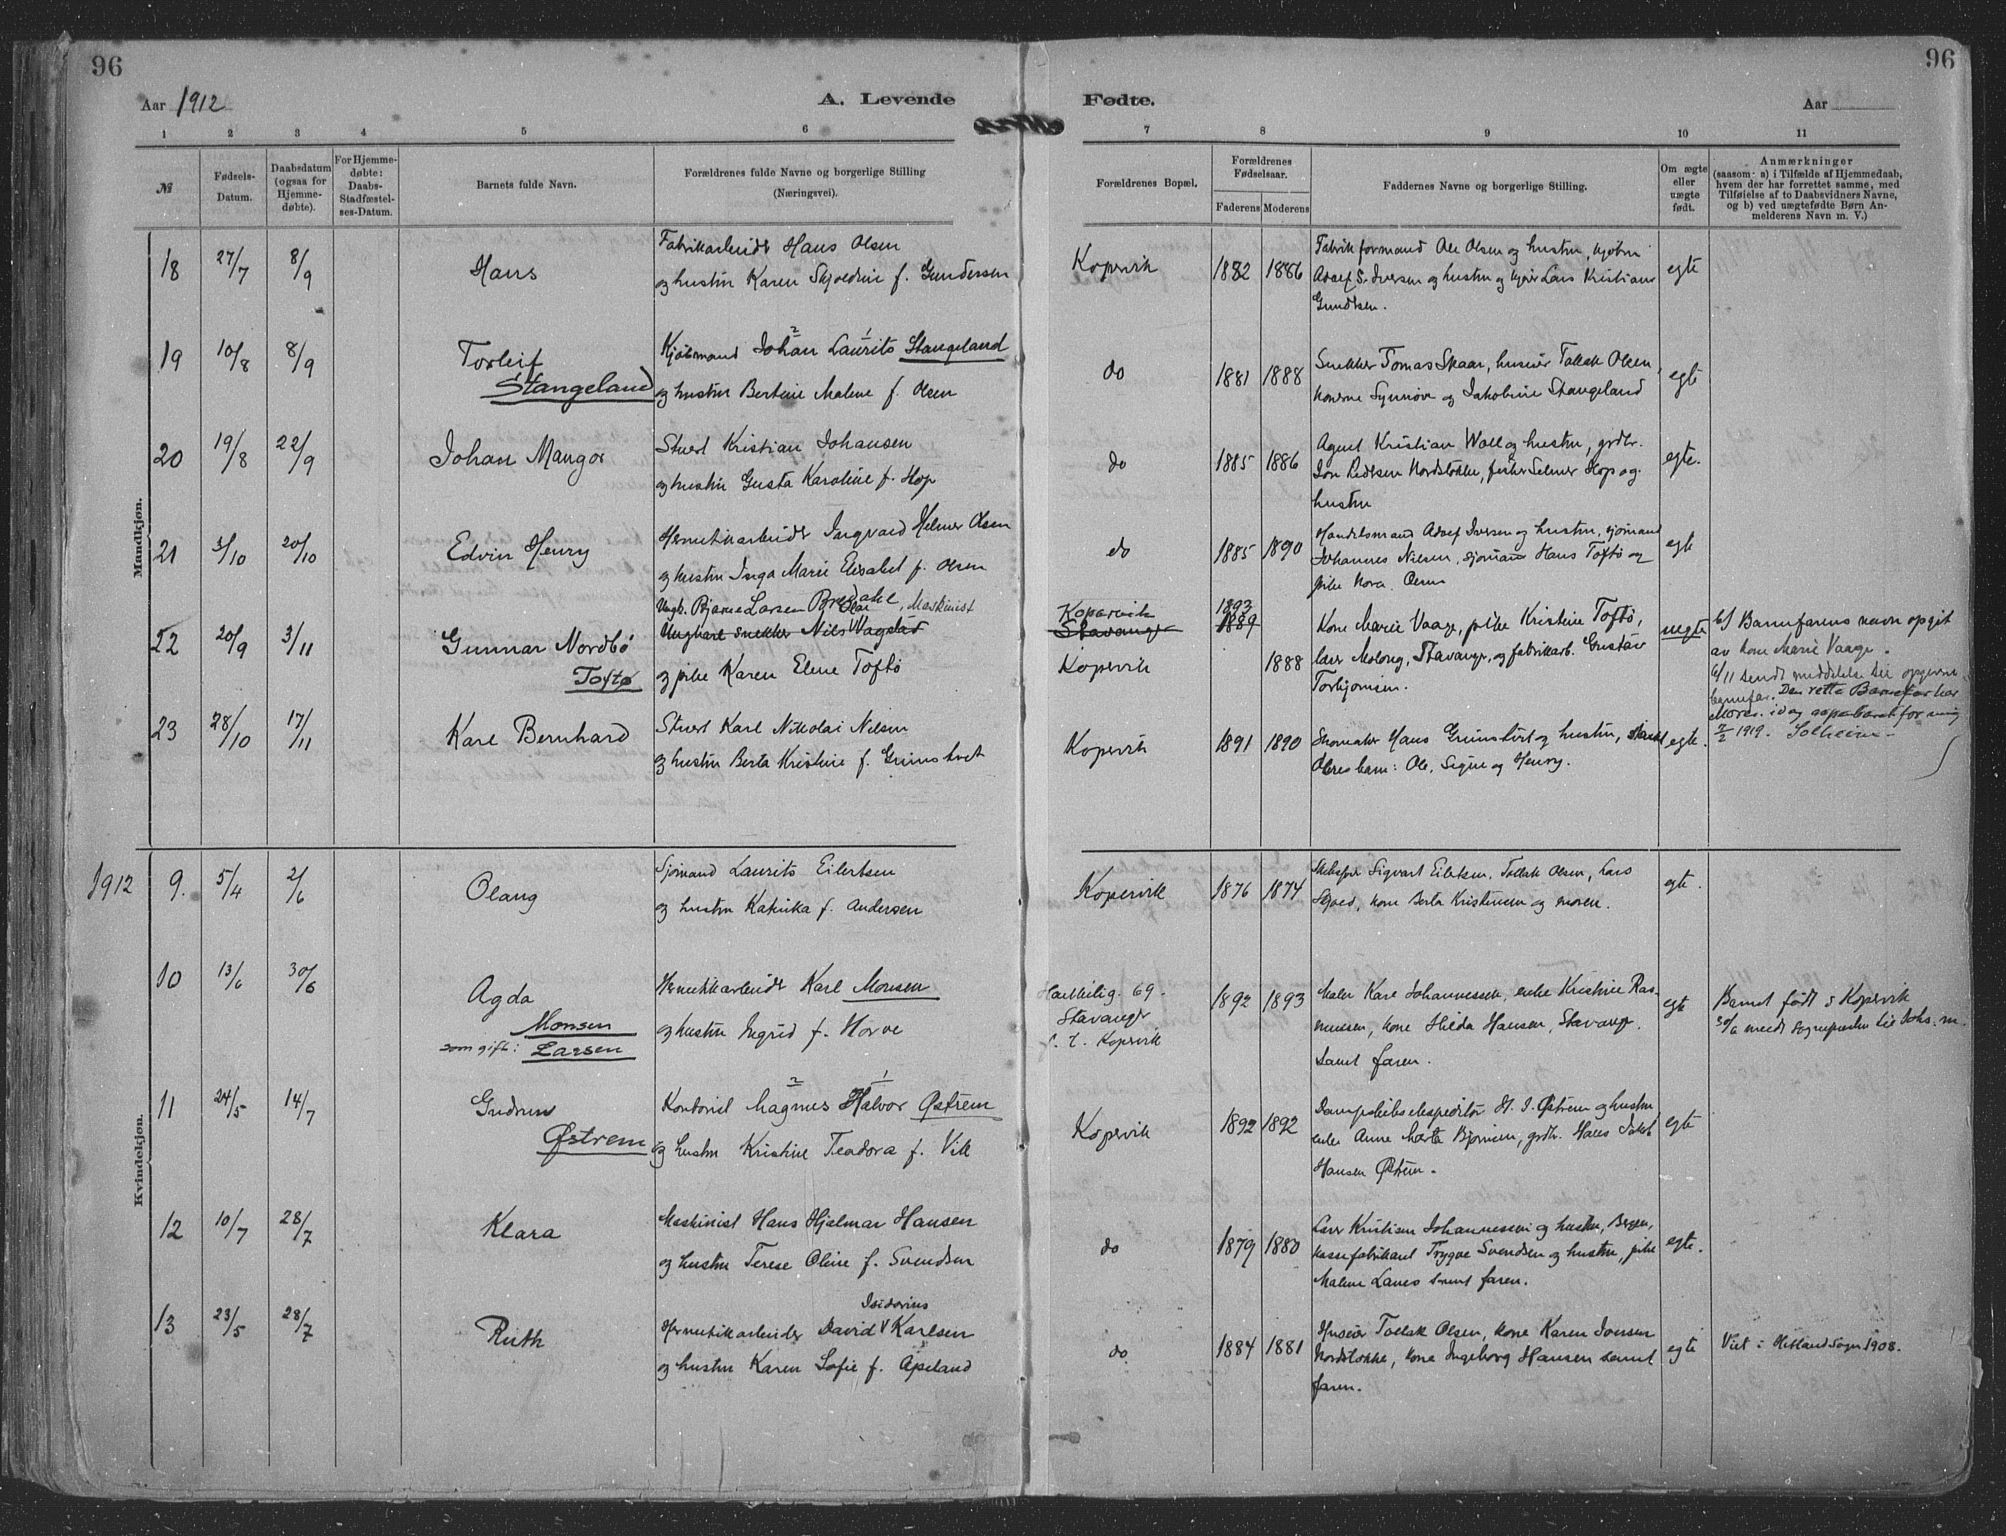 96
96
Aar 1912
A. Levende
Fødte.
Aar
1 2 3 4 5 6 7 8 9 10 11
№
Fødsels-
Datum.
Daabsdatum
(ogsaa for
Hjemme-
døbte).
For Hjemme-
døbte:
Daabs-
Stadfæstel-
ses-Datum.
Barnets fulde Navn.
Forældrenes fulde Navne og borgerlige Stilling
(Næringsvei).
Forældrenes Bopæl.
Forældrenes
Fødselsaar.
Faderens Moderens
Faddernes Navne og borgerlige Stilling.
Om ægte
eller
uægte
født.
Anmærkninger
(saasom a) i Tilfælde af Hjemmedaab,
hvem der har forrettet samme, med
Tilføielse af to Daabsvidners Navne,
og b) ved uægtefødte Børn An-
melderens Navn m. V.)
Mandkjøn.
18 27/7 8/9 Hans
Fabrikarbeider Hans Olsen
og hustru Karen Skjoldine f. Gundersen
Kopervik 1882 1886
Fabrikformand Ole Olsen og hustru,
Adolf S. Iversen og hustru og Lars Kristian
Gundersen.
egte
19 10/8 8/9 Torleif
Stangeland
Kjøbmand Johan 2 Laurits 1 Stangeland
og hustru Bertine Malene f. Olsen
do 1881 1888
Snekker Tomas Skaar, huseier Tallak Olsen,
konerne Synnøve og Jakobine Stangeland
egte
20 19/8 22/9 Johan Mangor
Stuert Kristian Johansen
og hustru Gusta Karoline f. Hop
do 1885 1886
Agent Kristian Wall og hustru, grdbr.
Jon Pedersen Nordstokke, fisker Selmer Hop og
hustru
egte.
21 3/10 20/10 Edvin Henry
Hermetikarbeider Ingvald Helmer Olsen
og hustru Inga Marie Elisabet f. Olsen
do 1885 1890
Handelsmand Adolf Iversen og hustru, sjømand
Johannes Nilsen, sjømand Hans Toftø og
pike Nora Olsen
egte
22 20/9 3/11 Gunnar Nordbø
Toftø
Ungk. Bjarne Larsen Bredahl, Maskinist
Ungkarl snekker Nils Olai Vagslad
og pike Karen Elene Toftø
Kopervik
Stavanger
Kopervik
1893
1889
1888
Kone Marie Vaage, pike Kristine Toftø,
Molaug, Stavanger, og fabrikarb. Gustav
Torbjørnsen.
uegte
b) Barnefarens navn opgit
av kone Marie Vaage.
6/11 sendt meddelelse til opgivne
barnefar. Den rette Barnefar har
Moren idag opgit for mig
7/2 1919. Solheim
23 28/10 17/11 Karl Bernhard
Stuert Karl Nikolai Nilsen
og hustru Berta Kristine f. Grimstvet
Kopervik 1891 1890
Skomaker Hans Grimstvet og hustru,
Olsens barn: Ole, Signe og Henry.
egte.
Kvindekjøn.
1912 9. 5/4 2/6 Olaug
Sjømand Laurits Eilertsen
og hustru Katinka f. Andersen
Kopervik 1876 1874
Skibsfør. Sigvart Eilertsen, Tallak Olsen, Lars
kone Berta Kristensen og moren.
egte.
10 13/6 30/6 Agda
Monsen
som gift: Larsen
Hermetikkarbeider Karl Monsen
og hustru Ingrid f. Horve
69.
Stavanger
f. t. Kopervik
1892 1893
Maler Karl Johannessen, enke Kristine Ras-
mussen, kone Hilda Hansen, Stavanger.
samt faren.
egte
Barnet født i Kopervik
30/6 meldt sognepresten til Johs. m.
11 24/5 14/7 Gudrun
Østrem
Kontorist Magnus 2 Halvor 1 Østrem
og hustru Kristine Teodora f. Vik
Kopervik 1892 1892
Dampskibsekspeditør H. J. Østrem og hustru
enke Anne Marta Bjørnsen, grdbr. Hans Jakob
Hansen Østrem.
egte
12 10/7 28/7 Klara
Maskinist Hans Hjalmar Hansen
og hustru Terese Oline f. Svendsen
do 1879 1880
Kristian Johannessen og hustru, Bergen,
kassefabrikant Trygve Svendsen og hustru, pike
Malene Lanes samt faren.
egte.
13 23/5 28/7 Ruth
Hermetikarbeider David Isidorius Karlsen
og hustru Karen Sofie f. Apeland
do 1884 1881
Huseier Tallak Olsen, kone Karen Jonsen
Nordstokke, kone Ingeborg Hansen samt
faren.
egte
Viet i Hetland Sogn 1908.